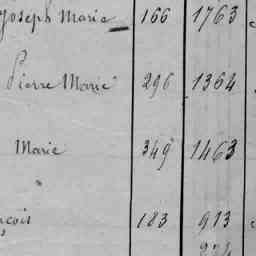 Joseph Marie 166 1763
Pierre Marie 296 1364
Marie 349 1463
"
çois 183 913
224